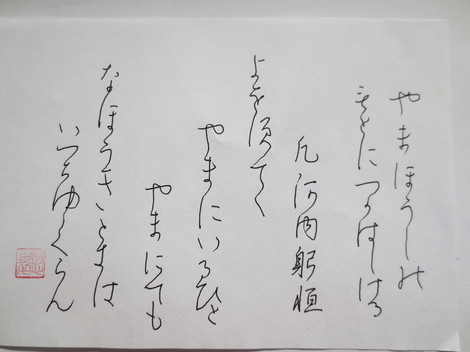 やまほうしの
もとにつかはしける
凡河内躬恒
よを須てゝ
やまにいるひと
やまにても
なほうきときは
いつちゆくらん